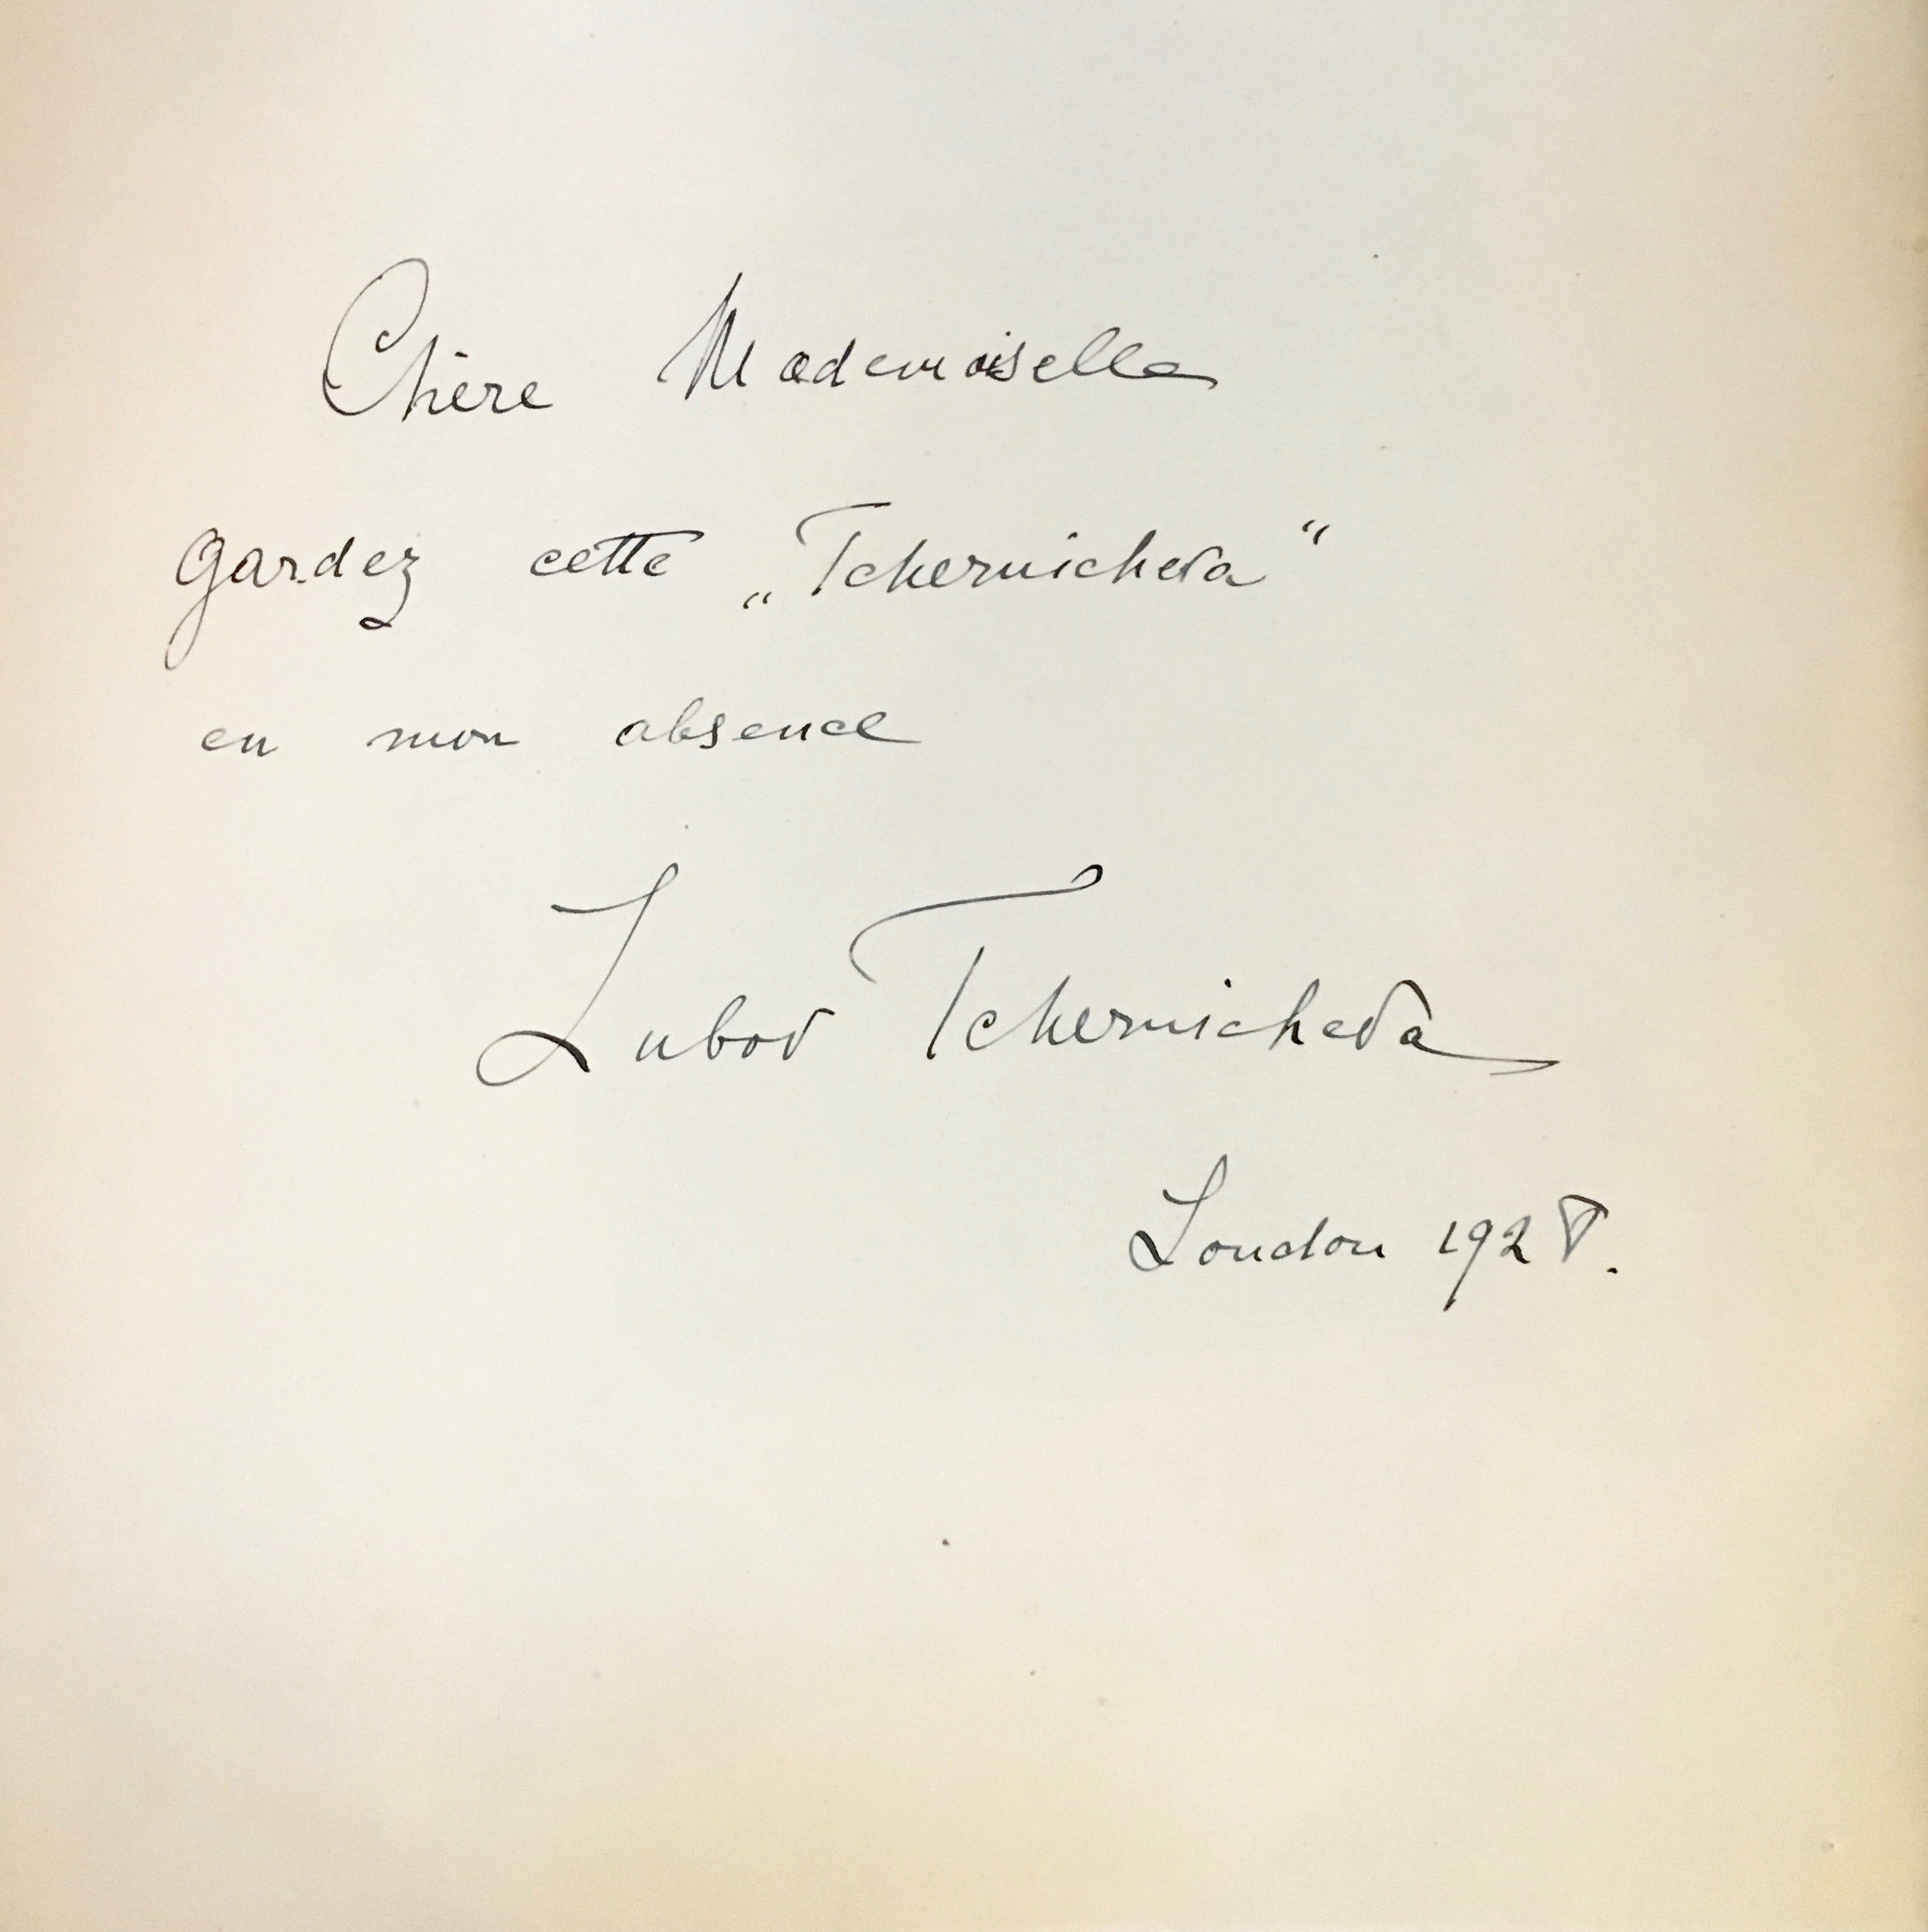 Chère Mademoiselle
Gardez cette „Tchernicheva“
en mon absence
Lubov Tchernicheva
London 1928.